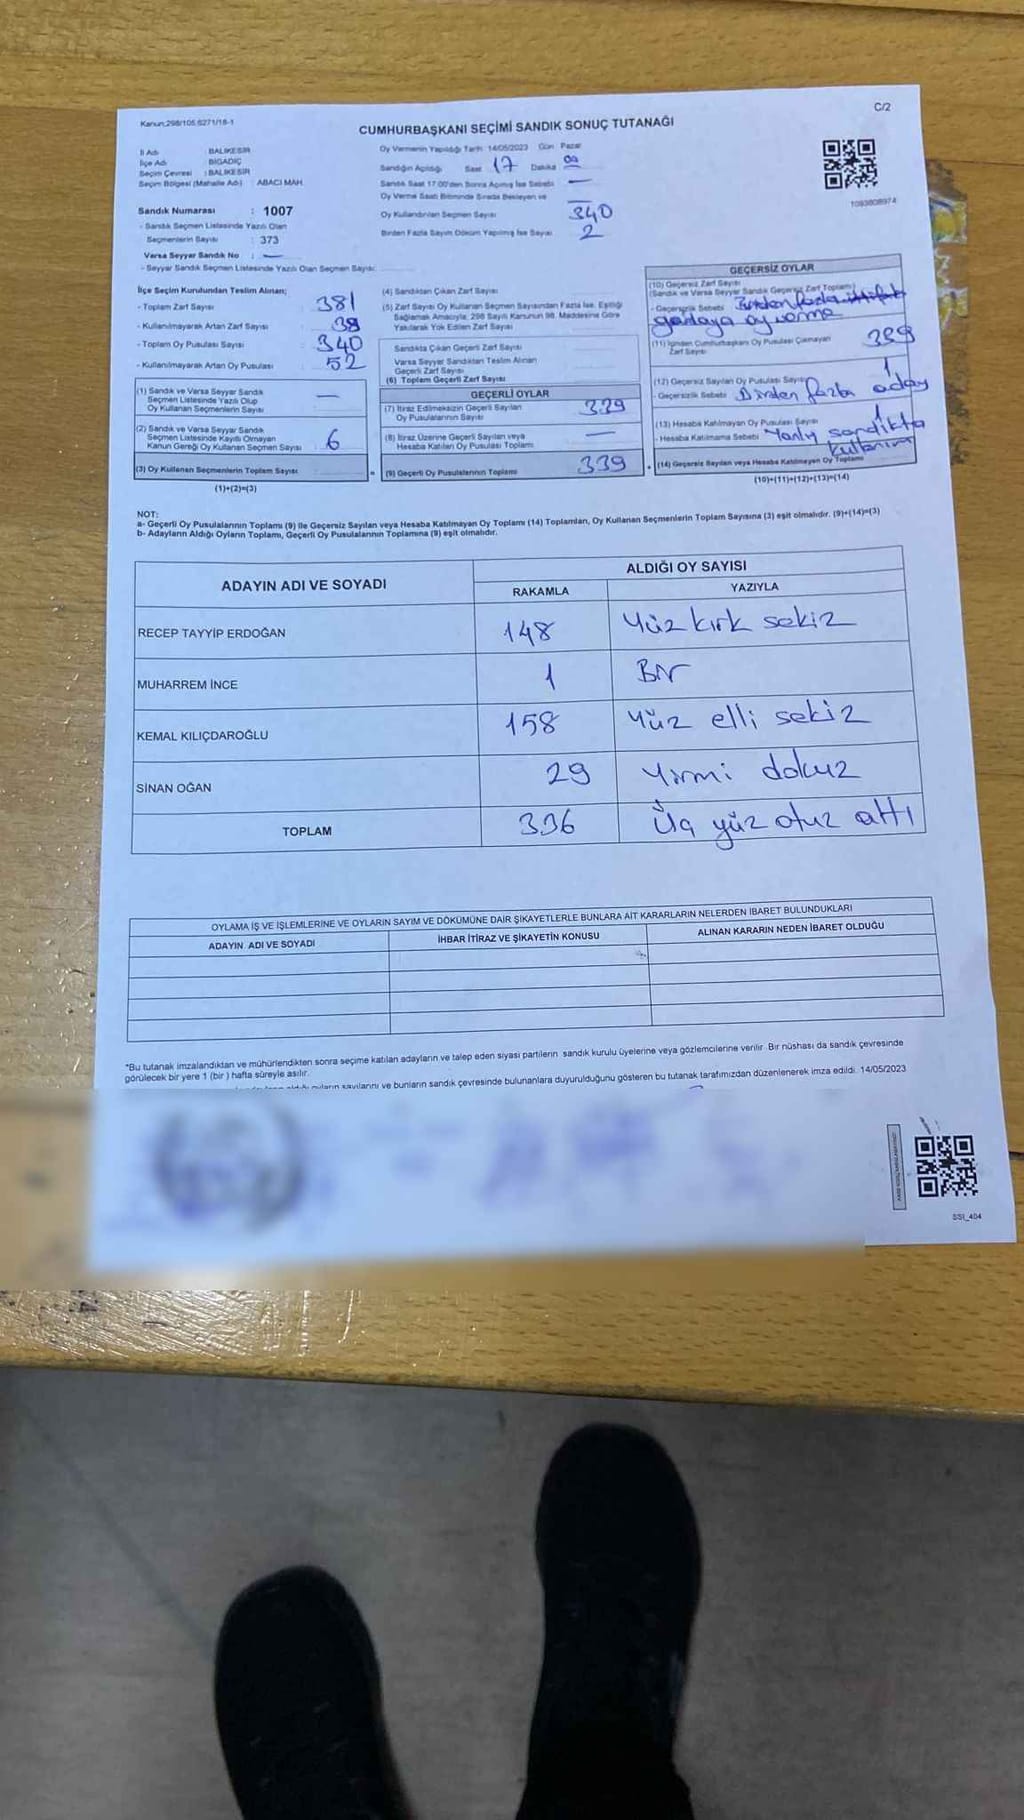 C/2
Kanun:298/105,6271/18-1
CUMHURBAŞKANI SEÇİMİ SANDIK SONUÇ TUTANAĞI
İl Adı : BALIKESİR
İlçe Adı : BİGADİÇ
Seçim Çevresi : BALIKESİR
Seçim Bölgesi (Mahalle Adı) : ABACI MAH.
Oy Vermenin Yapıldığı Tarih 14/05/2023 Gün Pazar
Sandığın Açıldığı Saat 17 Dakika 00
Sandık Saat 17:00'den Sonra Açılmış İse Sebebi —
Oy Verme Saati Bitiminde Sırada Bekleyen ve
Oy Kullandırılan Seçmen Sayısı 340
Birden Fazla Sayım Döküm Yapılmış İse Sayısı 2
1093808974
Sandık Numarası : 1007
- Sandık Seçmen Listesinde Yazılı Olan
Seçmenlerin Sayısı : 373
Varsa Seyyar Sandık No : —
- Seyyar Sandık Seçmen Listesinde Yazılı Olan Seçmen Sayısı:
İlçe Seçim Kurulundan Teslim Alınan;
- Toplam Zarf Sayısı : 381
- Kullanılmayarak Artan Zarf Sayısı : 38
- Toplam Oy Pusulası Sayısı : 340
- Kullanılmayarak Artan Oy Pusulası : 52
(1) Sandık ve Varsa Seyyar Sandık
Seçmen Listesinde Yazılı Olup
Oy Kullanan Seçmenlerin Sayısı —
(2) Sandık ve Varsa Seyyar Sandık
Seçmen Listesinde Kayıtlı Olmayan
Kanun Gereği Oy Kullanan Seçmen Sayısı 6
(3) Oy Kullanan Seçmenlerin Toplam Sayısı
(1)+(2)=(3)
(4) Sandıktan Çıkan Zarf Sayısı
(5) Zarf Sayısı Oy Kullanan Seçmen Sayısından Fazla İse, Eşitliği
Sağlamak Amacıyla, 298 Sayılı Kanunun 98. Maddesine Göre
Yakılarak Yok Edilen Zarf Sayısı
Sandıkta Çıkan Geçerli Zarf Sayısı
Varsa Seyyar Sandıktan Teslim Alınan
Geçerli Zarf Sayısı
(6) Toplam Geçerli Zarf Sayısı
GEÇERLİ OYLAR
(7) İtiraz Edilmeksizin Geçerli Sayılan
Oy Pusulalarının Sayısı 339
(8) İtiraz Üzerine Geçerli Sayılan veya
Hesaba Katılan Oy Pusulası Toplamı —
(9) Geçerli Oy Pusulalarının Toplamı 339
GEÇERSİZ OYLAR
(10) Geçersiz Zarf Sayısı
(Sandık ve Varsa Seyyar Sandık Geçersiz Zarf Toplamı)
- Geçersizlik Sebebi Birden fazla
oy verme
(11) İçinden Cumhurbaşkanı Oy Pusulası Çıkmayan
Zarf Sayısı 339
(12) Geçersiz Sayılan Oy Pusulası Sayısı 1
- Geçersizlik Sebebi Birden fazla aday
(13) Hesaba Katılmayan Oy Pusulası Sayısı 1
- Hesaba Katılmama Sebebi Yanlış sandıkta
kullanım
(14) Geçersiz Sayılan veya Hesaba Katılmayan Oy Toplamı
(10)+(11)+(12)+(13)=(14)
NOT:
a- Geçerli Oy Pusulalarının Toplamı (9) ile Geçersiz Sayılan veya Hesaba Katılmayan Oy Toplamı (14) Toplamları, Oy Kullanan Seçmenlerin Toplam Sayısına (3) eşit olmalıdır. (9)+(14)=(3)
b- Adayların Aldığı Oyların Toplamı, Geçerli Oy Pusulalarının Toplamına (9) eşit olmalıdır.
ADAYIN ADI VE SOYADI
ALDIĞI OY SAYISI
RAKAMLA YAZIYLA
RECEP TAYYİP ERDOĞAN 148 Yüz kırk sekiz
MUHARREM İNCE 1 Bir
KEMAL KILIÇDAROĞLU 158 Yüz elli sekiz
SİNAN OĞAN 29 Yirmi dokuz
TOPLAM 336 Üç yüz otuz altı
OYLAMA İŞ VE İŞLEMLERİNE VE OYLARIN SAYIM VE DÖKÜMÜNE DAİR ŞİKAYETLERLE BUNLARA AİT KARARLARIN NELERDEN İBARET BULUNDUKLARI
ADAYIN ADI VE SOYADI İHBAR İTİRAZ VE ŞİKAYETİN KONUSU ALINAN KARARIN NEDEN İBARET OLDUĞU
*Bu tutanak imzalandıktan ve mühürlendikten sonra seçime katılan adayların ve talep eden siyasi partilerin sandık kurulu üyelerine veya gözlemcilerine verilir. Bir nüshası da sandık çevresinde
görülecek bir yere 1 (bir ) hafta süreyle asılır.
oyların sayılarını ve bunların sandık çevresinde bulunanlara duyurulduğunu gösteren bu tutanak tarafımızdan düzenlenerek imza edildi. 14/05/2023
SSI_404